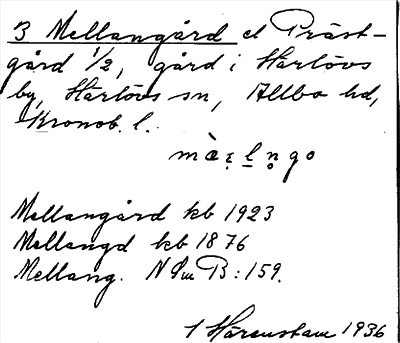 3 Mellangård el Präst-
gård 1/2, gård i Härlövs
by, Härlövs sn, Allbo hd,
Kronob. l.
mæ̀l̠n̥go
Mellangård kb 1923
Mellangd kb 1876
Mellang. N Sm B: 159.
1 Härenstam 1936